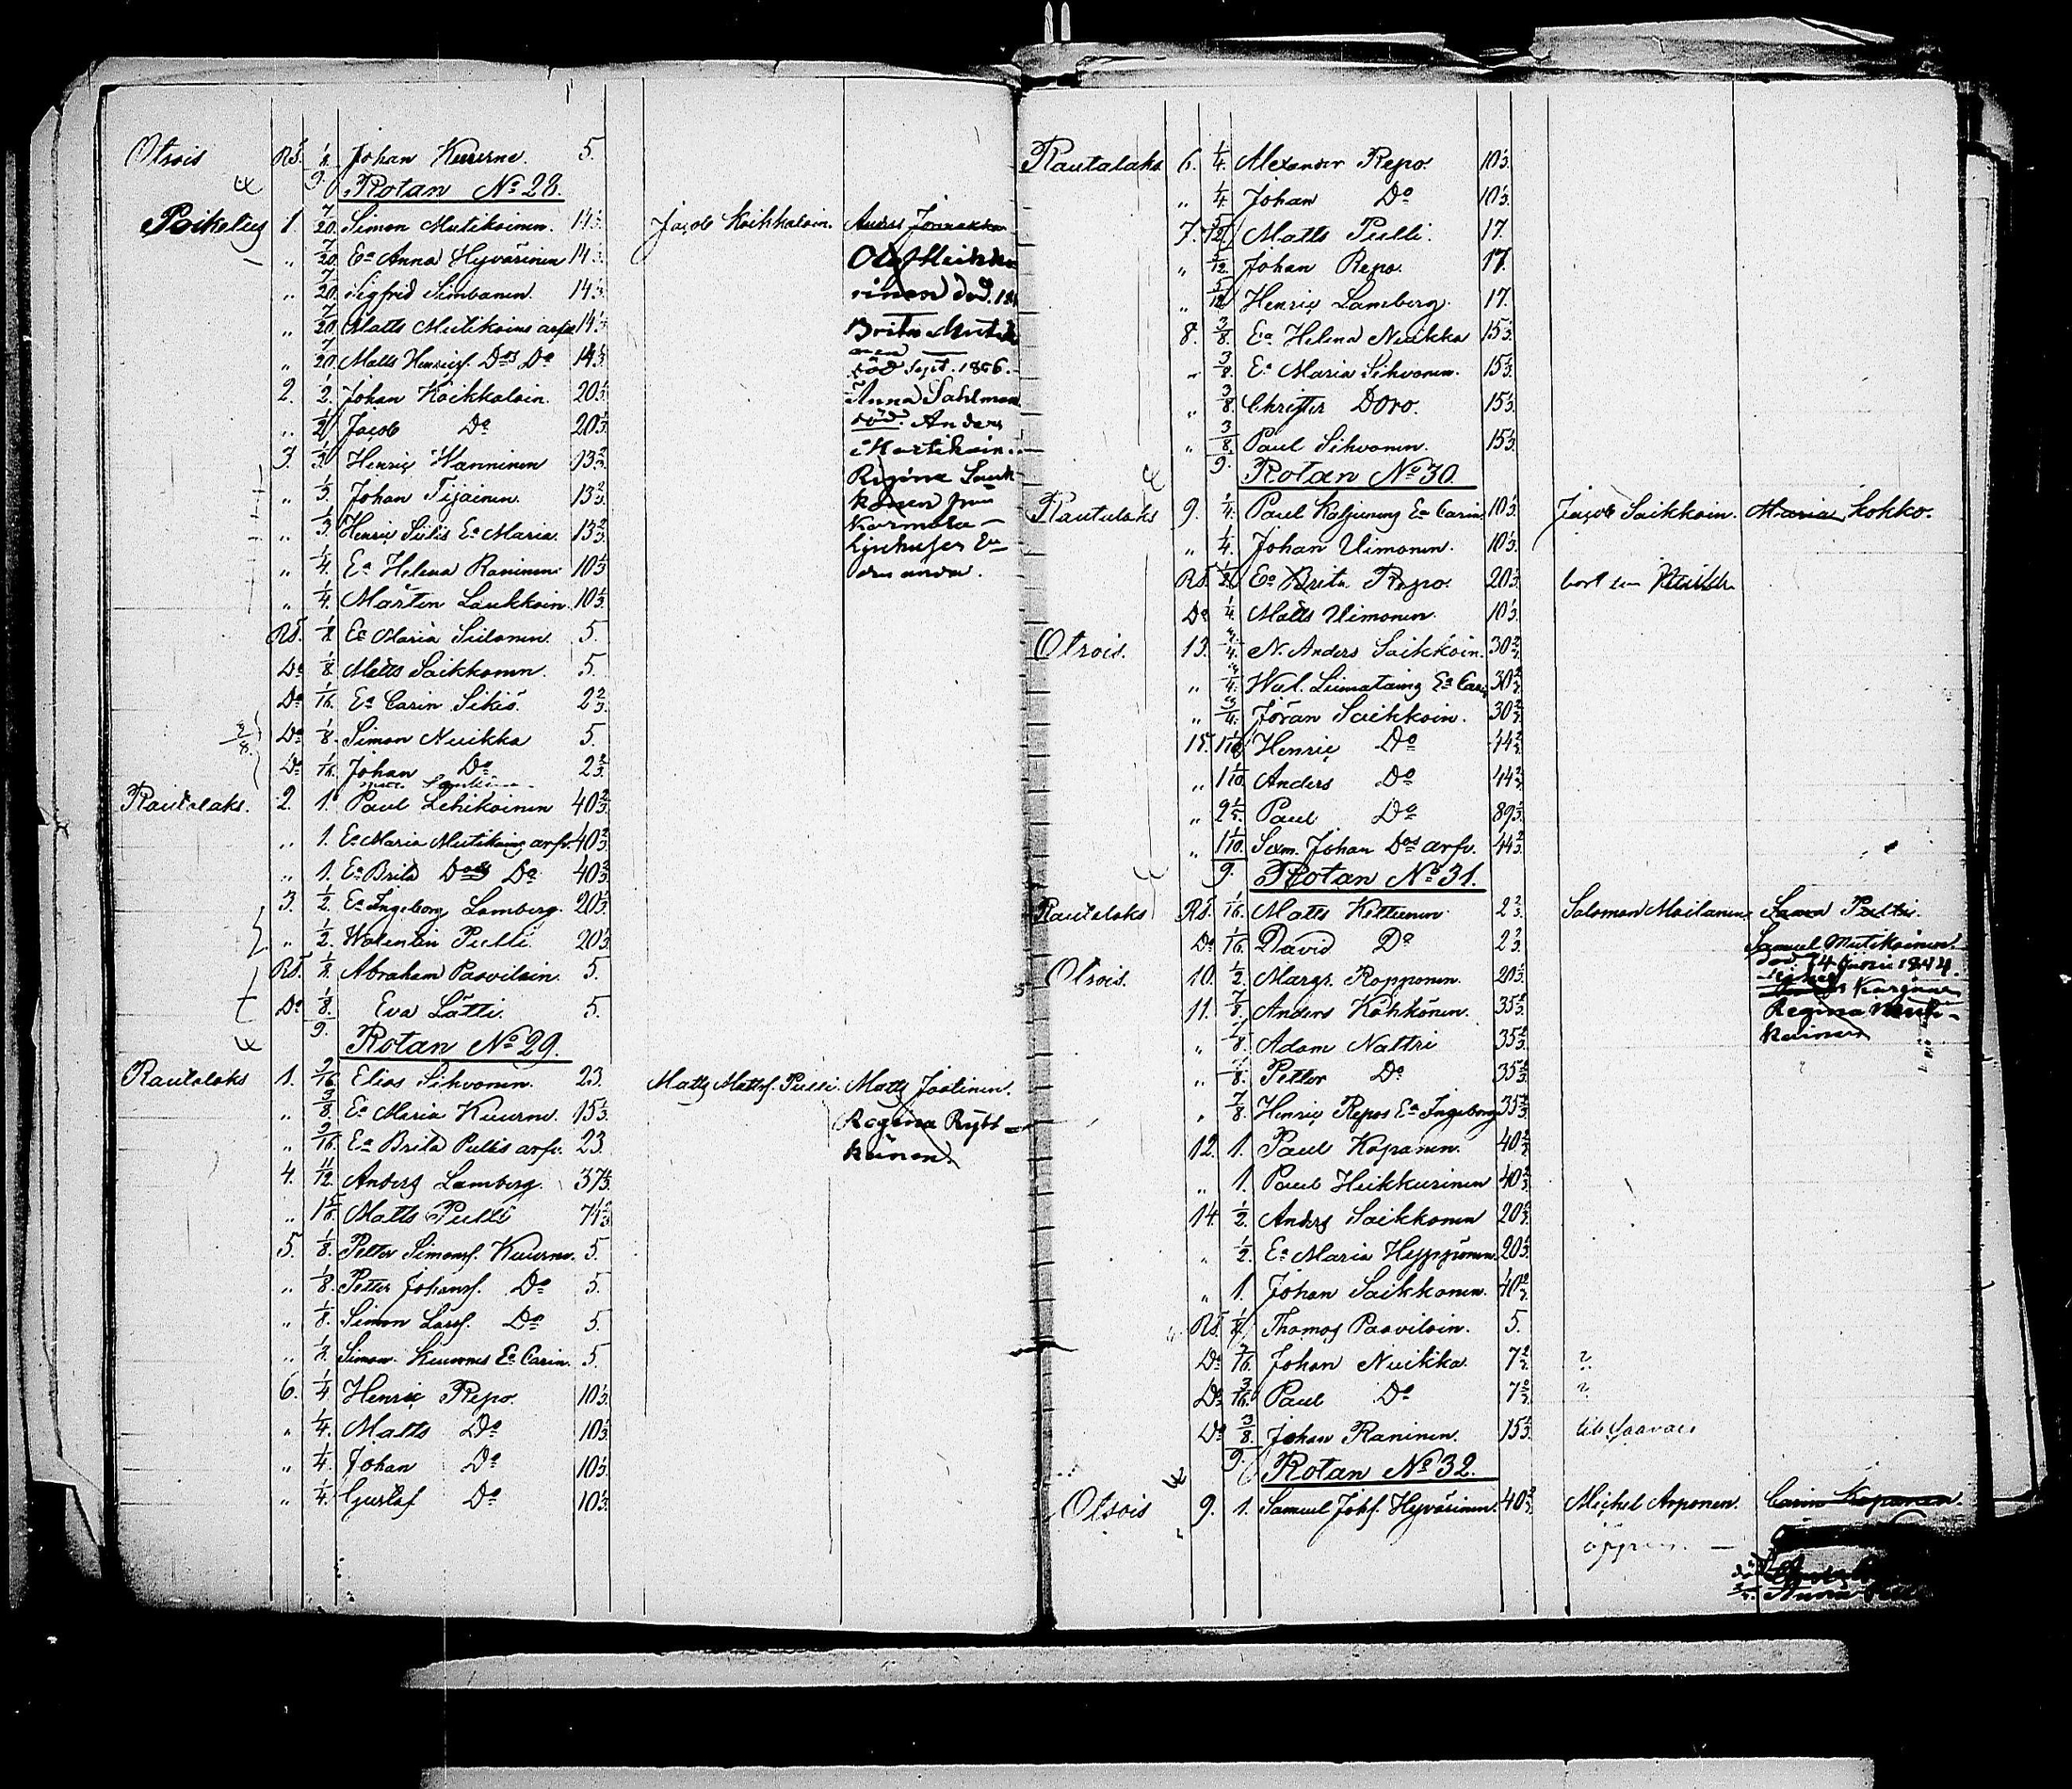 Otrois Rŏ. 1/8. Johan Kuurne. 5.
9. Rotan No 28.
Poikelus 1. 7/20. Simon Mutikoinen. 14 1/3. Jacob Koikkalain.
„ 7/20. Ea Anna Hyvärinen 14 1/3.
„ 7/20. Sigfrid Simbanen. 14 1/3. död.
„ 7/20. Matts Mutikoins arfv. 14 1/3. Brita
„ 7/20. Matts Henrics. Dos Do 14 1/3. död Sept. 1856.
2. 1/2. Johan Koikkalain. 20 1/3. Anna Sahlman
„ 1/2. Jacob Do 20 1/3. död. Anders
3. 1/3. Henric Wanninen 13 2/3. Martikain.
„ 1/3. Johan Tijainen. 13 2/3. Regina
„ 1/3. Henric Siilis Ea Maria. 13 2/3.
„ 1/4. Ea Helena Raninen 10 1/3.
„ 1/4. Mårten Laukkain. 10 1/3.
Rŏ. 1/8. Ea Maria Siilonen. 5.
Do 1/8. Matts Saikkonen. 5.
Do 1/16. Ea Carin Sikiö. 2 2/3.
Do 1/8. Simon Nuikka 5.
Do 1/16. Johan Do 2 2/3.
Rautalaks. 2. 1. Paul Lehikoinen 40 2/3.
„ 1. Ea Maria Mutikoins arfv. 40 2/3.
„ 1. Ea Brita Dos Do 40 2/3.
3. 1/2. Ea Ingeborg Lamberg. 20 1/3.
„ 1/2. Walentin Pulli 20 1/3.
Rŏ. 1/8. Abraham Paavilain. 5.
Do 1/8. Eva Lätti. 5.
9. Rotan No 29.
Rautalaks 1. 9/16. Elias Sihvonen. 23. Matts Mattss. Pulli. Matts Jootinen.
„ 3/8. Ea Maria Kuurne. 15 1/3. Regina Rytt-
„ 9/16. Ea Brita Pullis arfv. 23. köinen.
4. 11/12. Anders Lamberg. 37 1/3.
„ Matts Pulli
5. 1/8. Petter Simonss. Kuurne. 5.
„ 1/8. Petter Johanss. Do 5.
„ 1/8. Simon Larss. Do 5.
„ 1/8. Simon Kuurnes Ea Carin. 5.
6. 1/4. Henric Repo. 10 1/3.
„ 1/4. Matts Do 10 1/3.
„ 1/4. Johan Do 10 1/3.
„ 1/4. Gustaf Do 10 1/3.
Rautalaks. 6. 1/4. Alexander Repo. 10 1/3.
„ 1/4. Johan Do 10 1/3.
7. 5/12. Matts Pulli. 17.
„ 5/12. Johan Repo. 17.
„ 5/12. Henric Lamberg. 17.
8. 3/8. Ea Helena Nuikka 15 1/3.
„ 3/8. Ea Maria Sihvonen. 15 1/3.
„ 3/8. Christer Doro. 15 1/3.
„ 3/8. Paul Sihvonen. 15 1/3.
9. Rotan No 30.
Rautalaks 9. 1/4. Paul Ea Carin 10 1/3. Jacob Saikkoin. Maria Kokko.
„ 1/4. Johan Uimonen. 10 1/3.
Rŏ. 1/2. Ea Brita Repo. 20 1/3. bort
Do 1/4. Matts Uimonen. 10 1/3.
Otrois. 13. 3/4. N. Anders Saikkoin. 30 2/3.
„ 3/4. Wal. Liimatains Ea Carin 30 2/3.
„ 3/4. Jöran Saikkoin. 30 2/3.
15. 1 1/10. Henric Do 44 2/3.
„ 1 1/10. Anders Do 44 2/3.
„ 2 1/5. Paul Do 89 1/3.
„ 1 1/10. Sexm. Johan Dos arfv. 44 2/3.
9. Rotan No 31.
Rautalaks Rŏ. 1/16. Matts Kettunen 2 2/3. Salomon Moilanen
Do 1/16. David Do 2 2/3. Samuel Mutikainen
Otrois. 10. 1/2. Margr. Ropponen. 20 1/3. död 14 Junii 1844.
11. 7/8. Anders Kähkönen. 35 2/3.
„ 7/8. Adam Nattri 35 2/3. Regina
„ 7/8. Petter Do 35 2/3.
„ 7/8. Henric Repos Ea Ingeborg 35 2/3.
12. 1. Paul Kopanen. 40 2/3.
„ 1. Paul Heikkurinen 40 2/3.
14. 1/2. Anders Saikkonen 20 1/3.
„ 1/2. Ea Maria Hyppönen. 20 1/3.
„ 1. Johan Saikkonen. 40 2/3.
Rŏ. 1/8. Thomas Paavilain. 5.
Do 3/16. Johan Nuikka. 7 2/3. ?
Do 3/16. Paul Do 7 2/3. ?
Do 3/8. Johan Raninen. 15 1/3. till
9. Rotan No 32.
Otsois 9. 1. Samuel Johs. Hyvärinen. 40 2/3. Michel Arponen. Carin Kopanen.
öppen. —